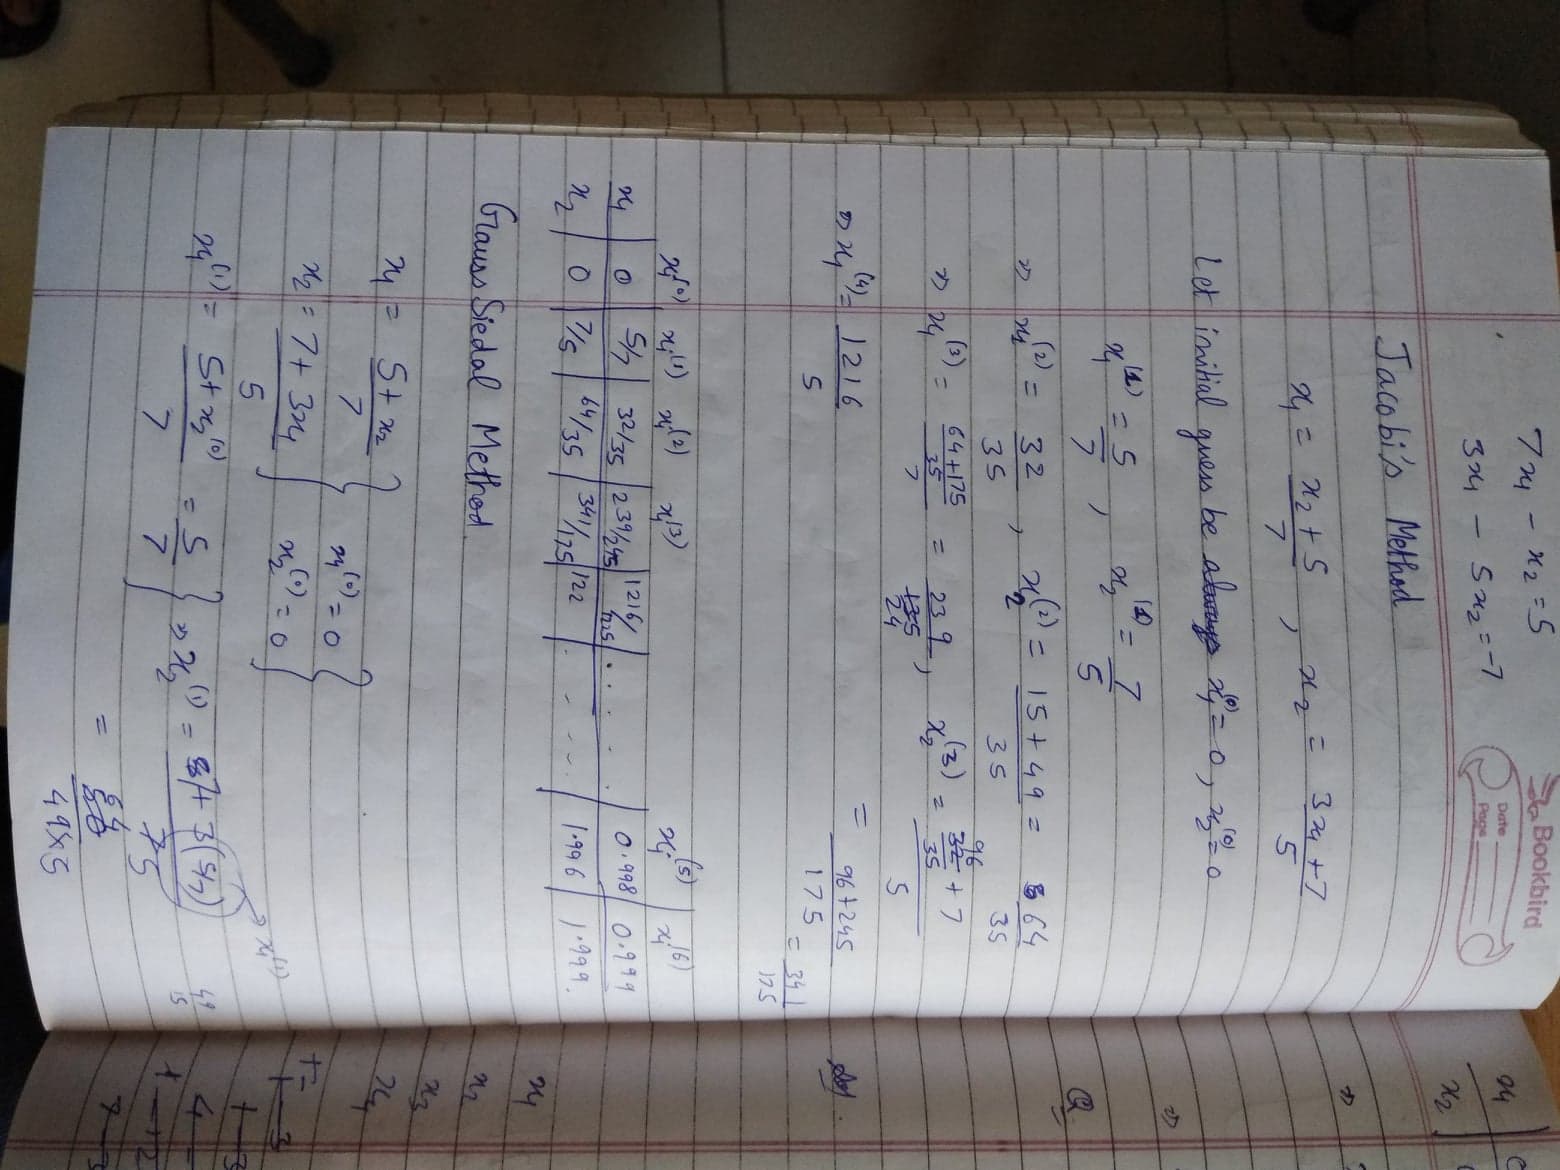 7x1 - x2 = 5
3x1 - 5x2 = -7
Bookbird
Date
Page
Jacobi's Method
x1 = x2 + 5 / 7 , x2 = 3x1 + 7 / 5
Let initial guess be x1^(0) = 0, x2^(0) = 0
x1^(1) = 5/7 , x2^(1) = 7/5
» x1^(2) = 32/35 , x2^(2) = 15 + 49 / 35 = 64/35
» x1^(3) = 64+175/35 / 7 = 239/245 , x2^(3) = 96/35 + 7 / 5
» x1^(4) = 1216/5 = 96+245/175 = 341/175
x1^(0) x1^(1) x1^(2) x1^(3) x1^(5) x1^(6)
x1 | 0 | 5/7 | 32/35 | 239/245 | 1216/1225 | . . . . | 0.998 | 0.999
x2 | 0 | 7/5 | 64/35 | 341/175 | 122 | . - - . | 1.996 | 1.999.
Gauss Siedal Method
x1 = 5 + x2 / 7 } x1^(0) = 0 }
x2 = 7 + 3x1 / 5 } x2^(0) = 0 }
x1^(1) = 5 + x2^(0) / 7 = 5/7 } » x2^(1) = 7 + 3(5/7) / 5 → x1^(1)
= 64 / 49×5
49
15
x1
x2
Q
x1
x2
x3
x4